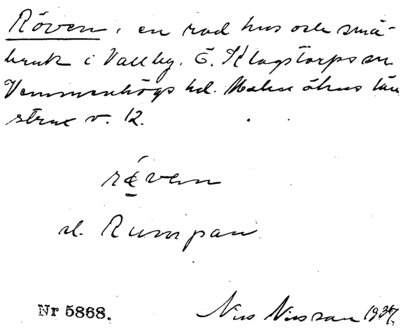 Röven, en rad hus och små-
bruk i Vallby. Ö. Klagstorps sn
Vemmenhögs hd. Malmöhus län
strax v. 12.
röven
el. Rumpan.
Nr 5868. Nils Nilsson